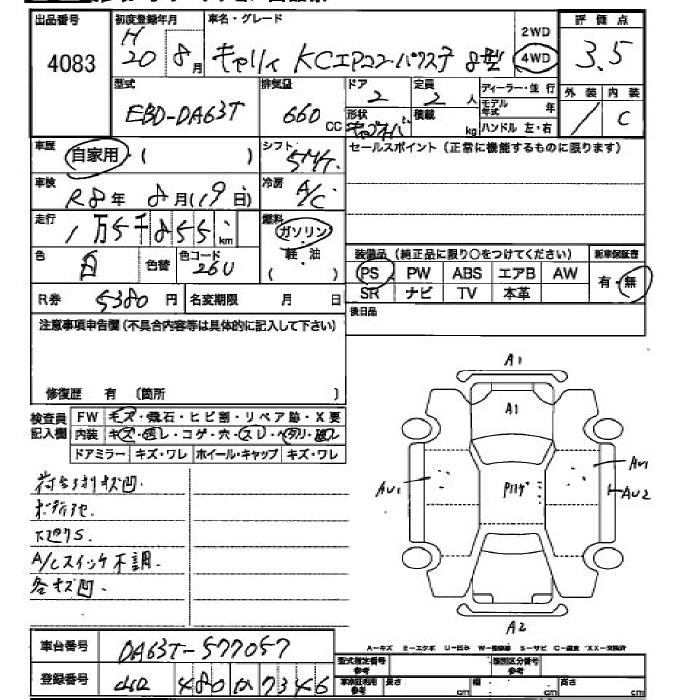 出品番号 初度登録年月 車名・グレード 2WD 評価点
4083 H20 8月 キャリィ KCエアコン・パワステ 8型 4WD 3.5
型式 排気量 ドア 2 定員 2人 ディーラー・並行 外装 内装
EBD-DA63T 660cc 形状 積載 kg モデル年式 年 ハンドル 左・右 / C
車歴 自家用・( ) シフト 5MT. セールスポイント(正常に機能するものに限ります)
車検 R8年 8月(19日) 冷房 A/C
走行 1万5千855km 燃料 ガソリン・軽油 ( )
装備品(純正品に限り○をつけてください) 新車保証書
色 白 色替 色コード 26U PS PW ABS エアB AW 有・無
R券 5380円 名変期限 月 日 SR ナビ TV 本革
注意事項申告欄(不具合内容等は具体的に記入して下さい) 後日品
修復歴 有 〔箇所 〕
検査員記入欄 FW キズ・飛石・ヒビ割・リペア跡・X要
内装 キズ・汚レ・コゲ・穴・スレ・ヘタリ・破レ
ドアミラー キズ・ワレ ホイール・キャップ キズ・ワレ
A1
A1
AU1
AU1
AU2
A2
キズ凹.
下廻りS.
A/Cスイッチ不調.
各キズ凹.
A-キズ E-エクボ U-凹み W-補修跡 S-サビ C-腐食 XX-交換済
車台番号 DA63T-577057
登録番号 480 7346
型式指定番号 参考 類別区分番号 参考
車庫証明用 参考 長さ cm 幅 cm 高さ cm